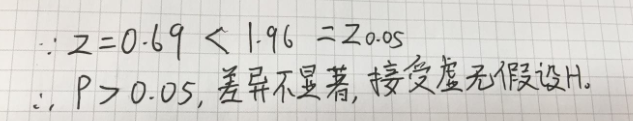 ∵ Z=0.69 < 1.96 = Z0.05
∴ P>0.05, 差异不显著, 接受虚无假设H。